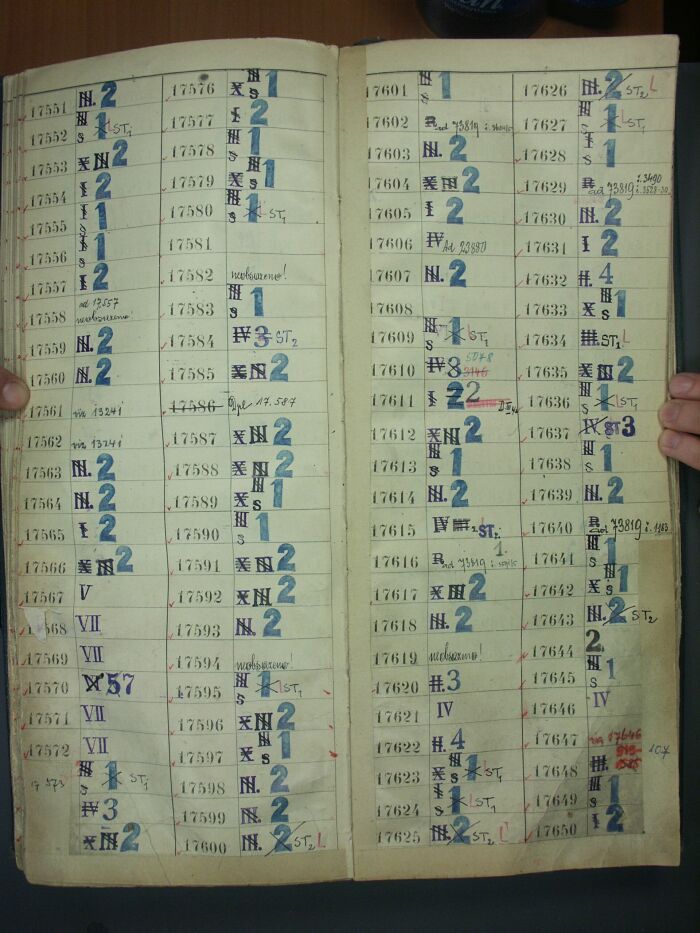 17551 III. 2
17552 III s 1 L ST1
17553 X III 2
17554 I 2
17555 I s 1
17556 I s 1
17557 I 2
17558 ad 17557 neobsazeno!
17559 III. 2
17560 III. 2
17561 viz 13241
17562 viz 13241
17563 III. 2
17564 III. 2
17565 I 2
17566 X III 2
17567 V
17568 VII
17569 VII
17570 57
17571 VII
17572 VII
17573 III s 1 ST1
IV 3
X III 2
17576 X III s 1
17577 I 2
17578 III s 1
17579 X III s 1
17580 III s 1 ST1
17581
17582 neobsazeno!
17583 III s 1
17584 IV 3 ST2
17585 X III 2
17586 17.587
17587 X III 2
17588 X III 2
17589 X III s 1
17590 III s 1
17591 X III 2
17592 X III 2
17593 III. 2
17594 neobsazeno!
17595 III s 1 L ST1
17596 X III 2
17597 X III s 1
17598 III. 2
17599 III. 2
17600 III. 2 ST2 L
17601 III s 1
17602 R ad 73819
17603 III. 2
17604 X III 2
17605 I 2
17606 IV Ad 23890
17607 III. 2
17608
17609 III s 1 ST1
17610 IV 3
17611 I 2 2
17612 X III 2
17613 III s 1
17614 III. 2
17615 IV ST2
17616 R ad 73819 1.
17617 X III 2
17618 III. 2
17619 neobsazeno!
17620 II. 3
17621 IV
17622 II. 4
17623 X III s 1 L ST1
17624 I s 1 L ST1
17625 III. 2 ST2 L
17626 III. 2 ST2 L
17627 III s 1 L ST1
17628 I s 1
17629 R ad 73819 i. 3490
17630 III. 2
17631 I 2
17632 II. 4
17633 X III s 1
17634 III. ST1 L
17635 X III 2
17636 III s 1 L ST1
17637 IV ST 3
17638 III s 1
17639 III. 2
17640 R ad 73819 i. 1183
17641 III s 1
17642 X III s 1
17643 III. 2 ST2
17644 2
17645 III s 1
17646 IV
17647 via 17646
17648 III. 107
17649 III s 1
17650 I 2